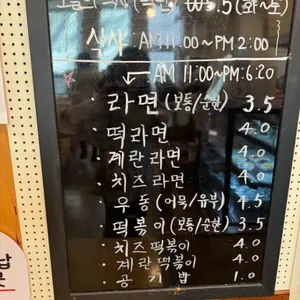 5.5 (화~토)
식사 : AM 11:00~PM 2:00
AM 11:00~PM:6:20
· 라면 (보통/순한) 3.5
· 떡라면 4.0
· 계란라면 4.0
· 치즈라면 4.0
· 우동 (어묵/유부) 4.5
· 떡볶이 (보통/순한) 3.5
· 치즈떡볶이 4.0
· 계란떡볶이 4.0
· 공기밥 1.0